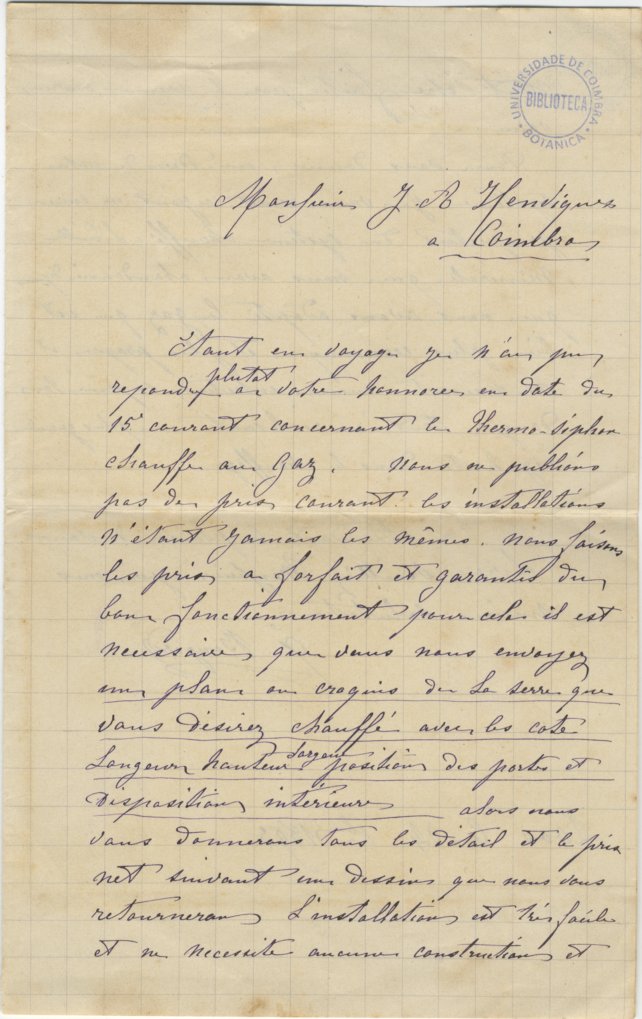 UNIVERSIDADE DE COIMBRA
BIBLIOTECA
BOTANICA
Monsieur J. A Henriques
a Coimbra
Etant en voyage je n'ai pu
repondre plutat a votre honnorée en date du
15 courant concernant le Thermo-siphon
chauffe au Gaz. Nous ne publions
pas de prix courant les installations
n'étant jamais les mêmes. nous faisons
les prix a forfait et garantis du
bon fonctionnement pour cela il est
necessaire que vous nous envoyez
un plan ou croquis de la serre que
vous désirez chauffé avec les cote
Longeur hauteur largeur position des portes et
Disposition intérieure alors nous
vous donnerons tous les détail et le prix
net suivant un dessin que nous vous
retourneron L'installation est trés facile
et ne necessite aucune construction et